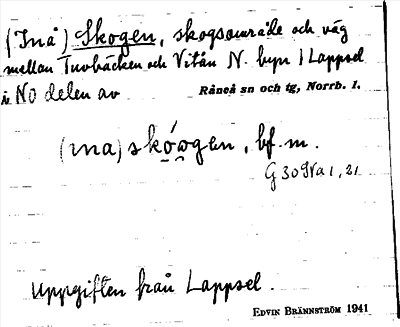 (Inå) Skogen, skogsområde och väg
mellan Tuvbäcken och Vitån N. byn i Lappsel
i NO delen av Råneå sn och tg, Norrb. l.
(ına) skó̬o̬gen, bf. m.
G 30 9Va 1, 21
Uppgiften från Lappsel.
EDVIN BRÄNNSTRÖM 1941